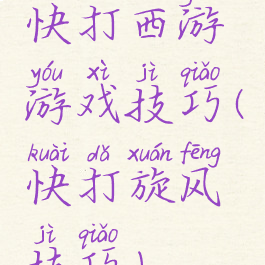 快打西游
yóu xì jì qiǎo
游戏技巧(
kuài dǎ xuán fēng
快打旋风
jì qiǎo
技巧)